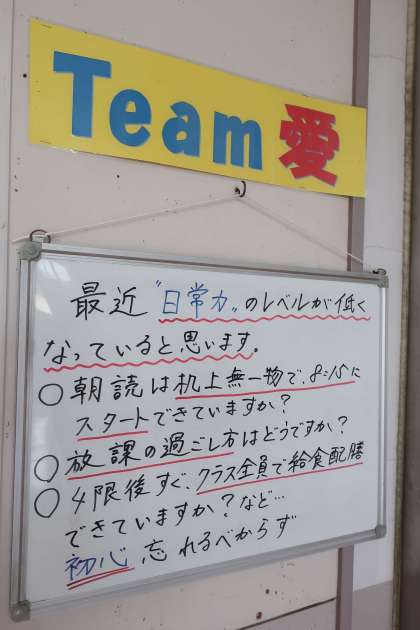 Team愛
最近〝日常力〟のレベルが低く
なっていると思います。
○朝読は机上無一物で、8:15に
スタートできていますか？
○放課の過ごし方はどうですか？
○4限後すぐ、クラス全員で給食配膳
できていますか？など…
初心、忘れるべからず